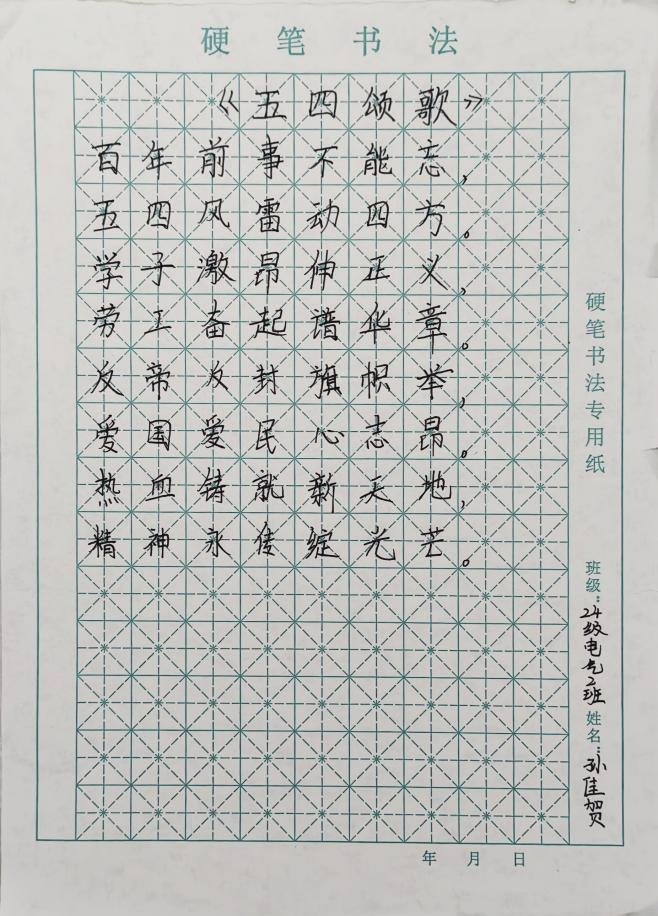 硬笔书法
《五四颂歌》
百年前事不能忘，
五四风雷动四方。
学子激昂伸正义，
劳工奋起谱华章。
反帝反封旗帜举，
爱国爱民心志昂。
热血铸就新天地，
精神永传绽光芒。
硬笔书法专用纸
班级：24级电气2班 姓名：孙佳贺
年 月 日